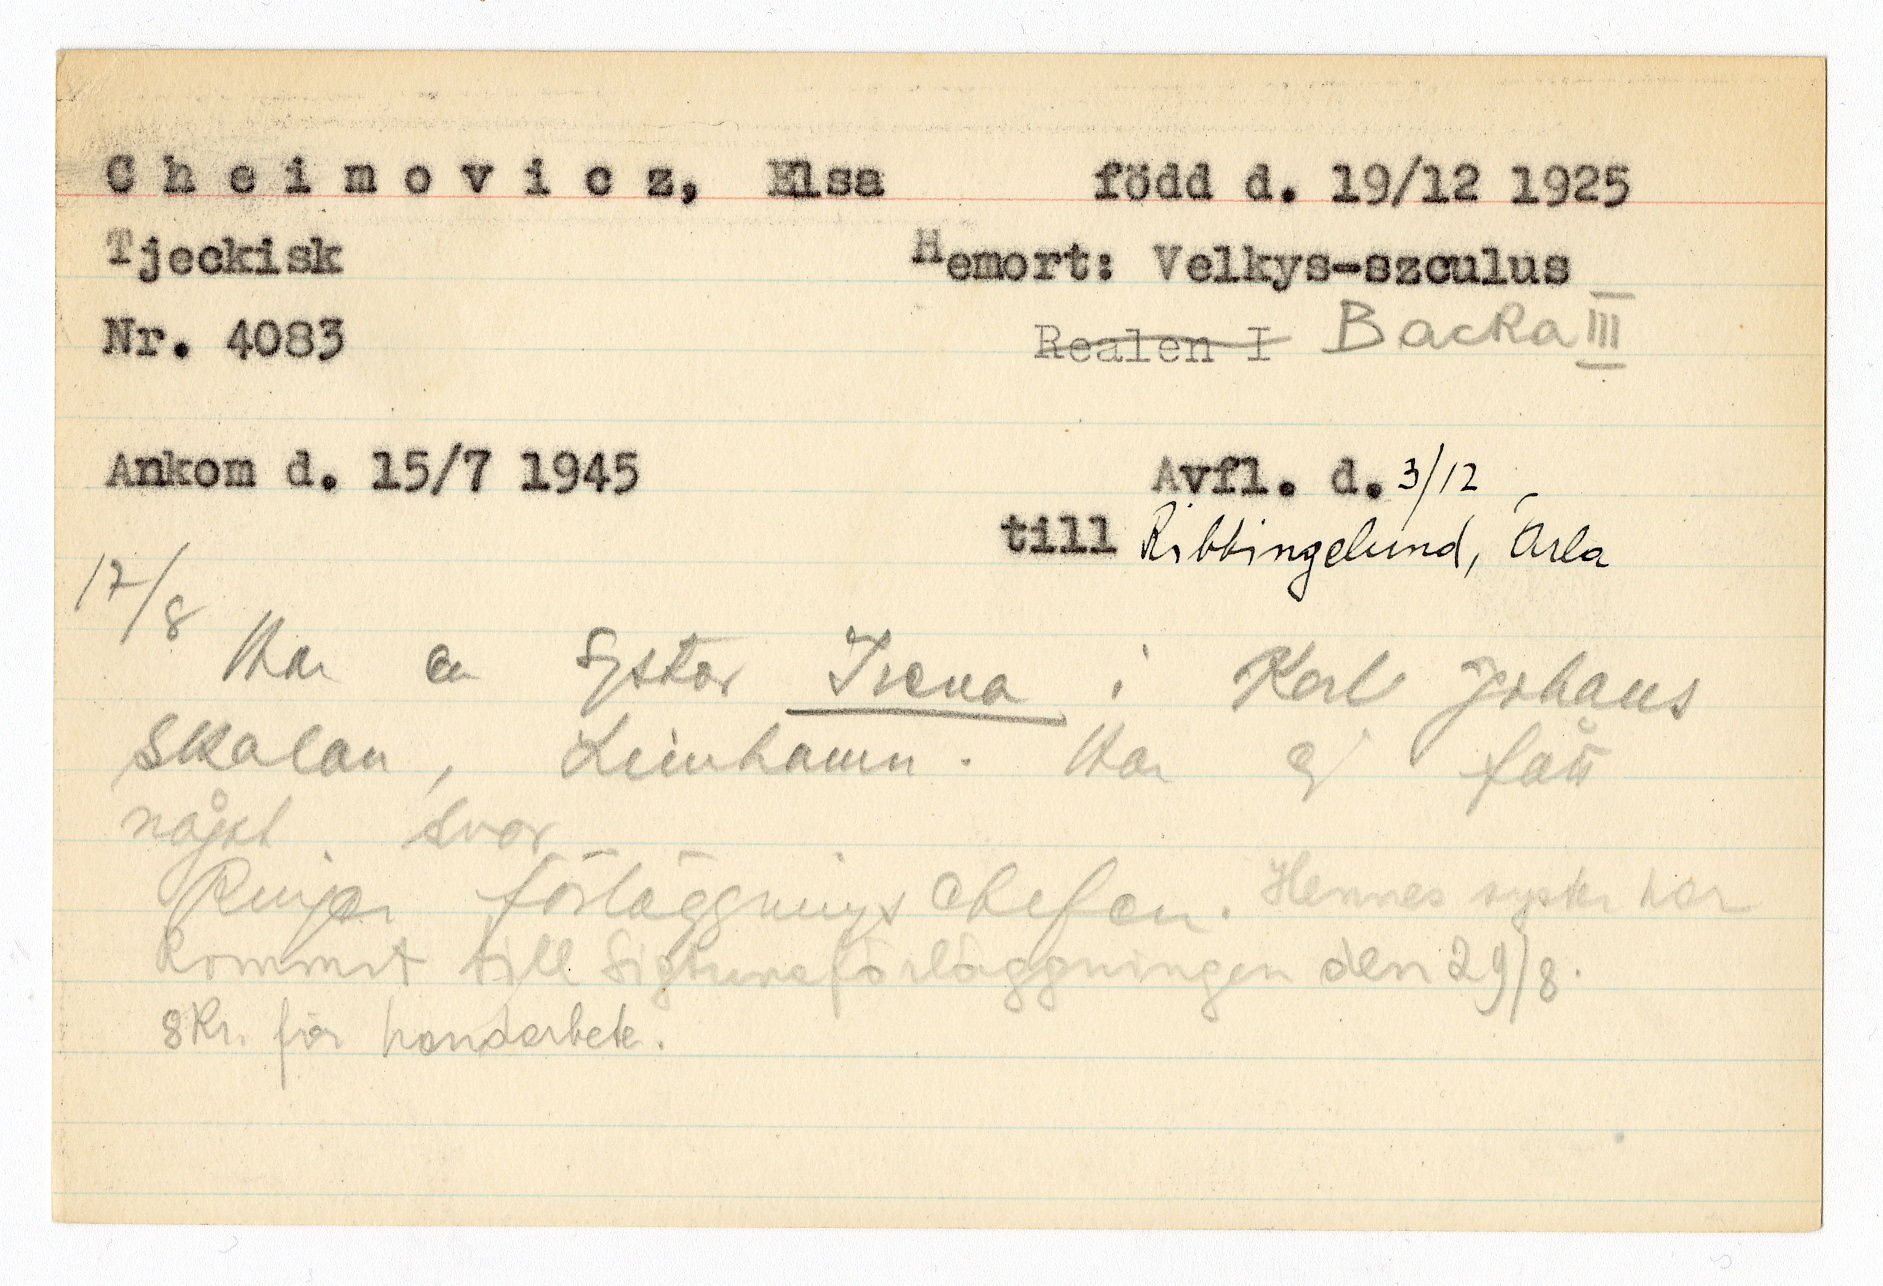 Cheimovicz, Elsa född d. 19/12 1925
Tjeckisk Hemort: Velkys-szculus
Nr. 4083 Realen I Backa III
Ankom d. 15/7 1945 Avfl. d. 3/12
till Ribbingelund, Ärla
17/8
Har en Syster Irena i Karl Johans
Skolan, Limhamn. Har ej fått
något svar
Ringer förläggningschefen. Hennes syster har
kommit till Sigtunaförläggningen den 29/8.
8 Kr. för handarbete.